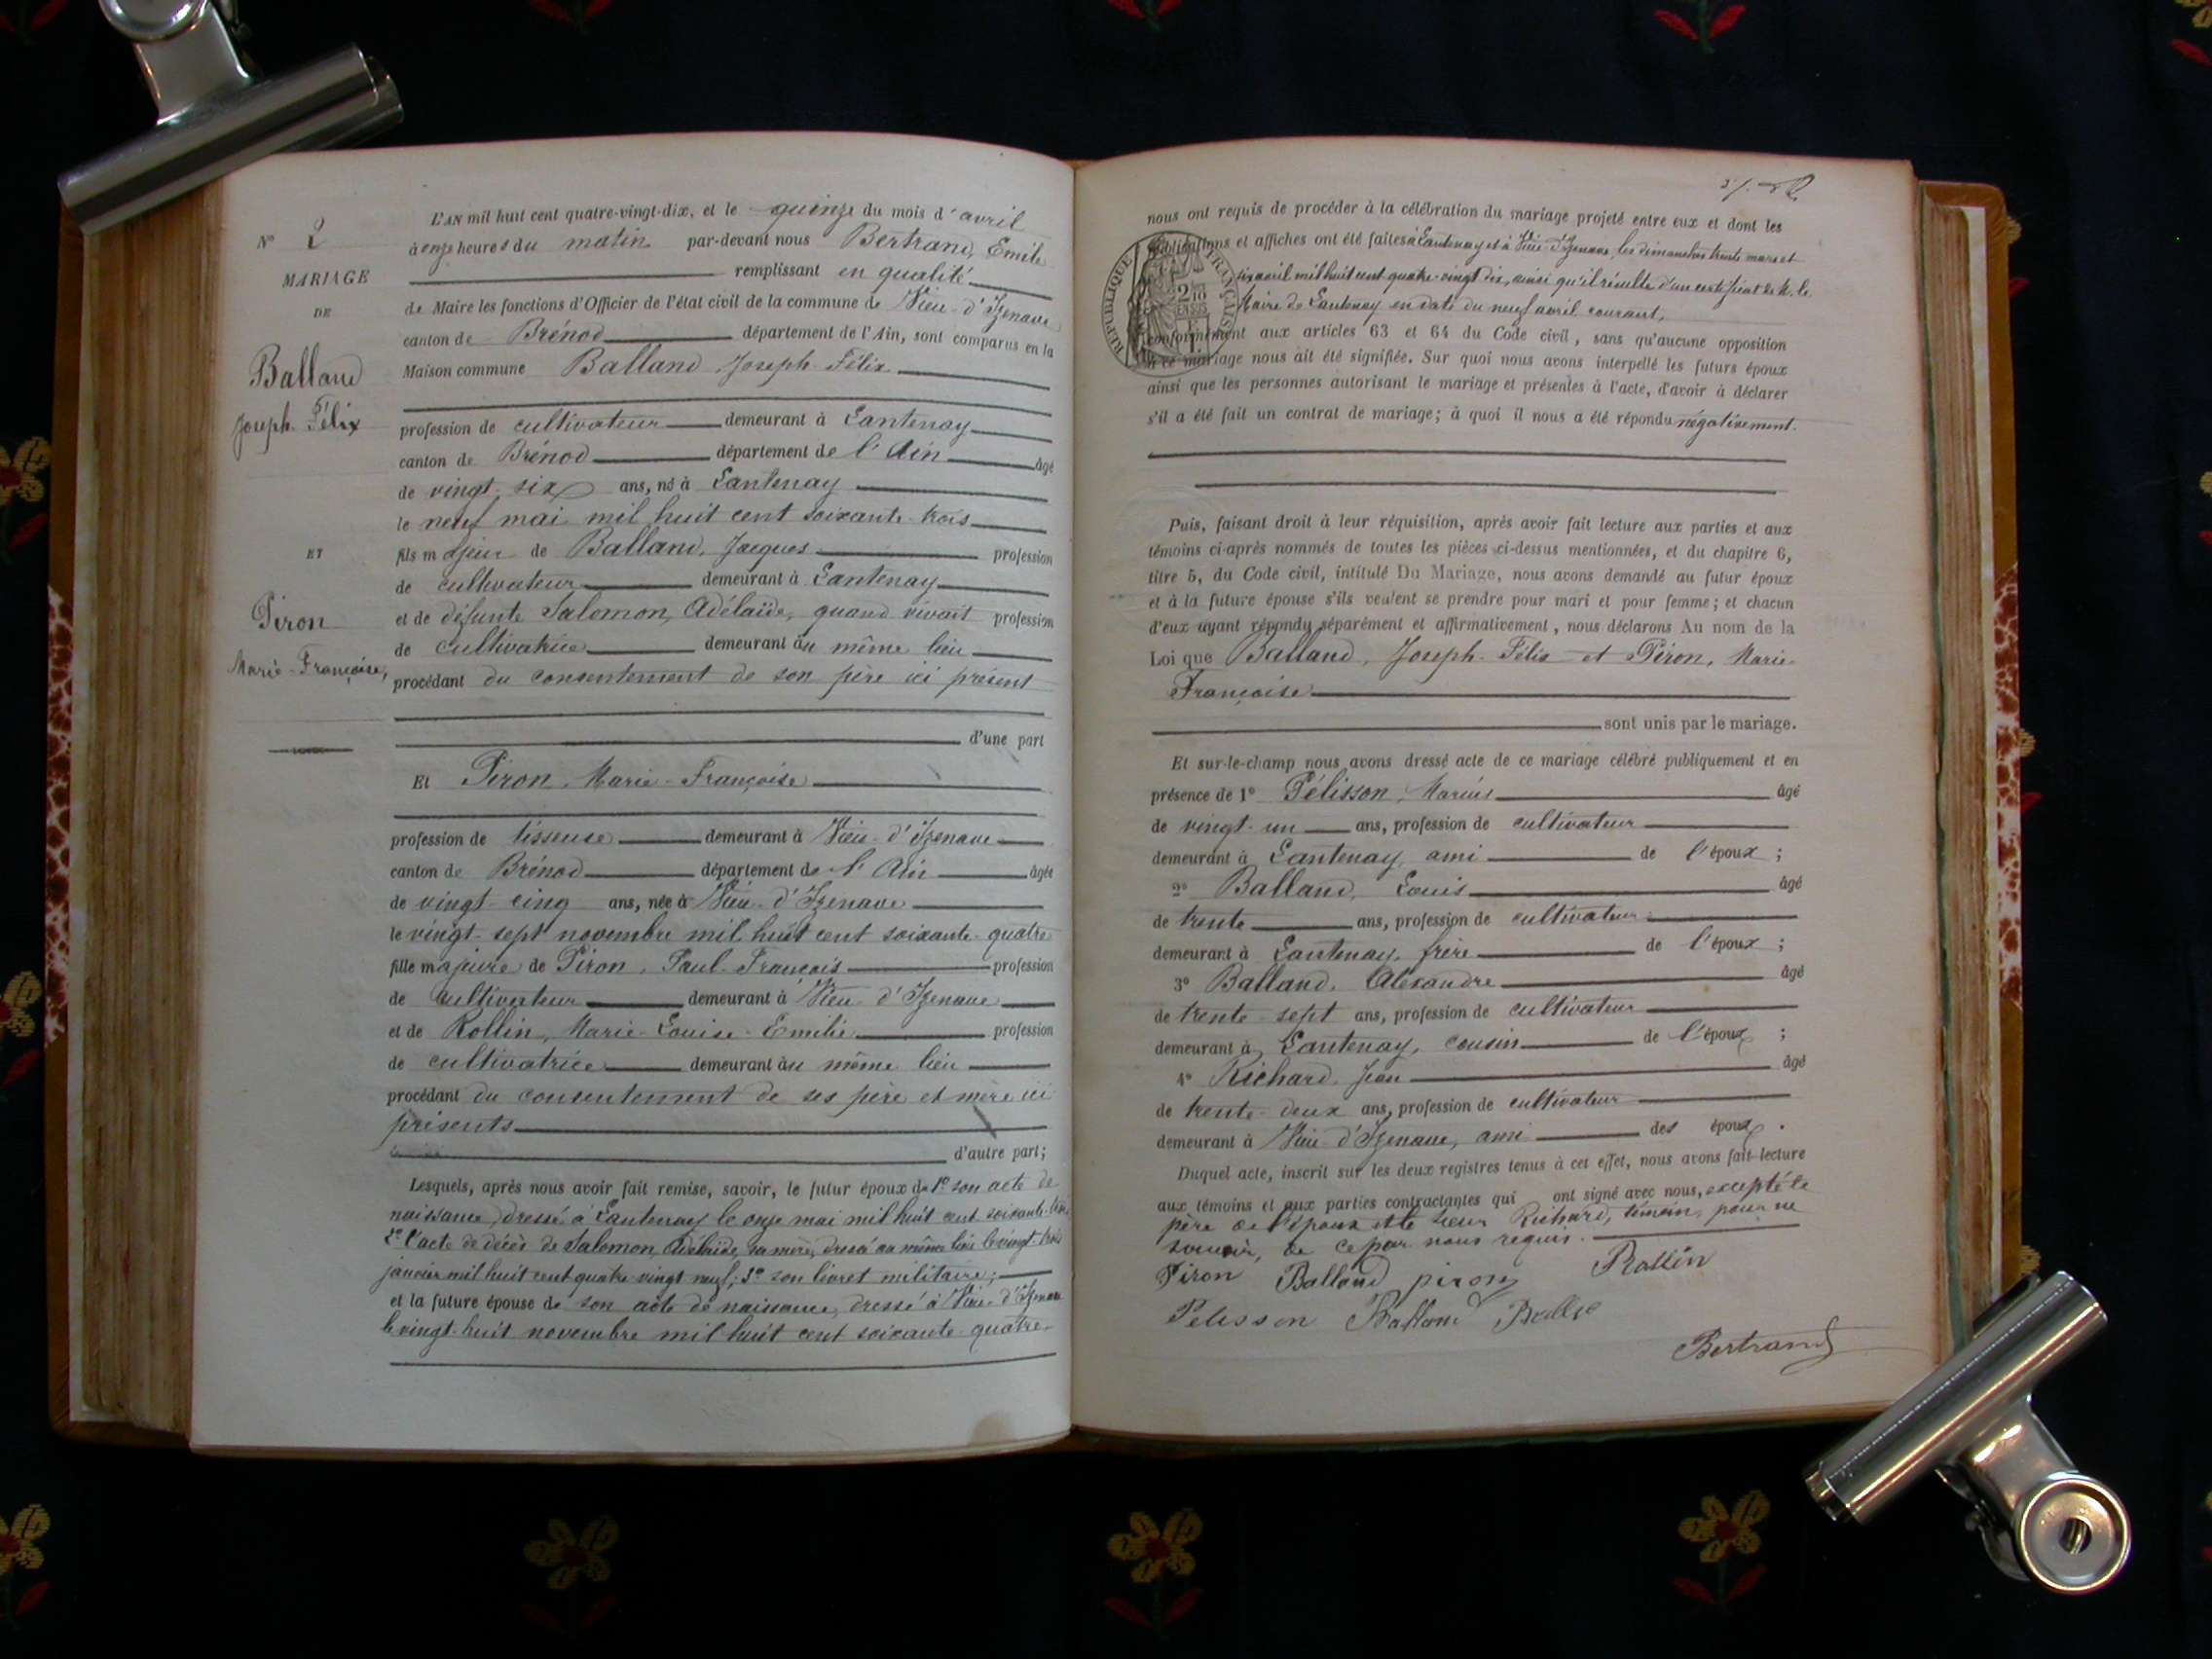 N° 2
MARIAGE
DE
Balland
Joseph Félix
ET
Piron
Marie-Françoise,
L'AN mil huit cent quatre-vingt-dix, et le quinze du mois d'avril
à onze heures du matin par-devant nous Bertrand, Emile
remplissant en qualité
de Maire les fonctions d'Officier de l'état civil de la commune de Vieu-d'Izenave
canton de Brénod département de l'Ain, sont comparus en la
Maison commune Balland Joseph Félix
profession de cultivateur demeurant à Lantenay
canton de Brénod département de l'Ain âgé
de vingt-six ans, né à Lantenay
le neuf mai mil huit cent soixante-trois
fils majeur de Balland, Jacques profession
de cultivateur demeurant à Lantenay
et de défunte Salomon, Adélaïde, quand vivait profession
de cultivatrice demeurant au même lieu
procédant du consentement de son père ici présent
d'une part
Et Piron, Marie-Françoise
profession de tisseuse demeurant à Vieu-d'Izenave
canton de Brénod département de l'Ain âgée
de vingt-cinq ans, née à Vieu-d'Izenave
le vingt-sept novembre mil huit cent soixante-quatre
fille majeure de Piron, Paul-François profession
de cultivateur demeurant à Vieu-d'Izenave
et de Rollin, Marie-Louise-Emilie profession
de cultivatrice demeurant au même lieu
procédant du consentement de ses père et mère ici
présents
d'autre part;
Lesquels, après nous avoir fait remise, savoir, le futur époux de 1° son acte de
naissance, dressé à Lantenay le onze mai mil huit cent soixante-trois
2° l'acte de décès de Salomon, Adélaïde, sa mère, dressé au même lieu le vingt-trois
janvier mil huit cent quatre-vingt-neuf; 3° son livret militaire;
et la future épouse de son acte de naissance, dressé à Vieu-d'Izenave
le vingt-huit novembre mil huit cent soixante-quatre
nous ont requis de procéder à la célébration du mariage projeté entre eux et dont les
publications et affiches ont été faites à Lantenay et à Vieu-d'Izenave, les dimanches trente mars et
six avril mil huit cent quatre-vingt-dix, ainsi qu'il résulte d'un certificat de M. le
Maire de Lantenay en date du neuf avril courant,
RÉPUBLIQUE FRANÇAISE
conformément aux articles 63 et 64 du Code civil, sans qu'aucune opposition
à ce mariage nous ait été signifiée. Sur quoi nous avons interpellé les futurs époux
ainsi que les personnes autorisant le mariage et présentes à l'acte, d'avoir à déclarer
s'il a été fait un contrat de mariage; à quoi il nous a été répondu négativement.
Puis, faisant droit à leur réquisition, après avoir fait lecture aux parties et aux
témoins ci-après nommés de toutes les pièces ci-dessus mentionnées, et du chapitre 6,
titre 5, du Code civil, intitulé Du Mariage, nous avons demandé au futur époux
et à la future épouse s'ils veulent se prendre pour mari et pour femme; et chacun
d'eux ayant répondu séparément et affirmativement, nous déclarons Au nom de la
Loi que Balland, Joseph-Félix et Piron, Marie-
Françoise
sont unis par le mariage.
Et sur-le-champ nous avons dressé acte de ce mariage célébré publiquement et en
présence de 1° Pélisson, Marius âgé
de vingt-un ans, profession de cultivateur
demeurant à Lantenay, ami de l'époux;
2° Balland, Louis âgé
de trente ans, profession de cultivateur
demeurant à Lantenay, frère de l'époux;
3° Balland, Alexandre âgé
de trente-sept ans, profession de cultivateur
demeurant à Lantenay, cousin de l'époux;
4° Richard, Jean âgé
de trente-deux ans, profession de cultivateur
demeurant à Vieu-d'Izenave, ami des époux.
Duquel acte, inscrit sur les deux registres tenus à cet effet, nous avons fait lecture
aux témoins et aux parties contractantes qui ont signé avec nous, excepté le
père de l'époux et le sieur Richard, témoin, pour ne
savoir, de ce par nous requis.
Piron Balland piron Rollin
Pelisson Balland
Bertrand